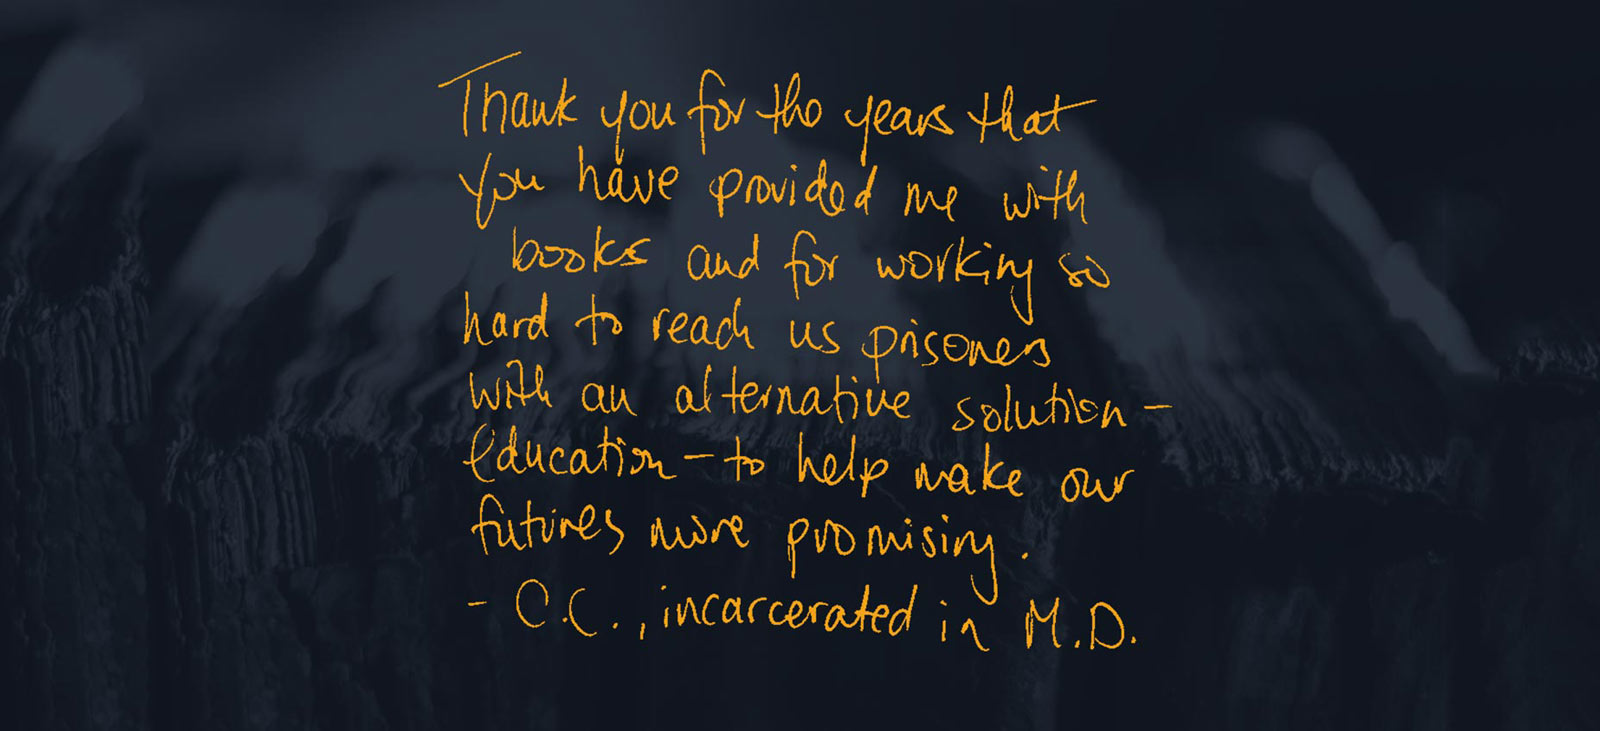 Thank you for the years that
you have provided me with
books and for working so
hard to reach us prisoners
with an alternative solution -
education - to help make our
futures more promising.
- C.C., incarcerated in M.D.